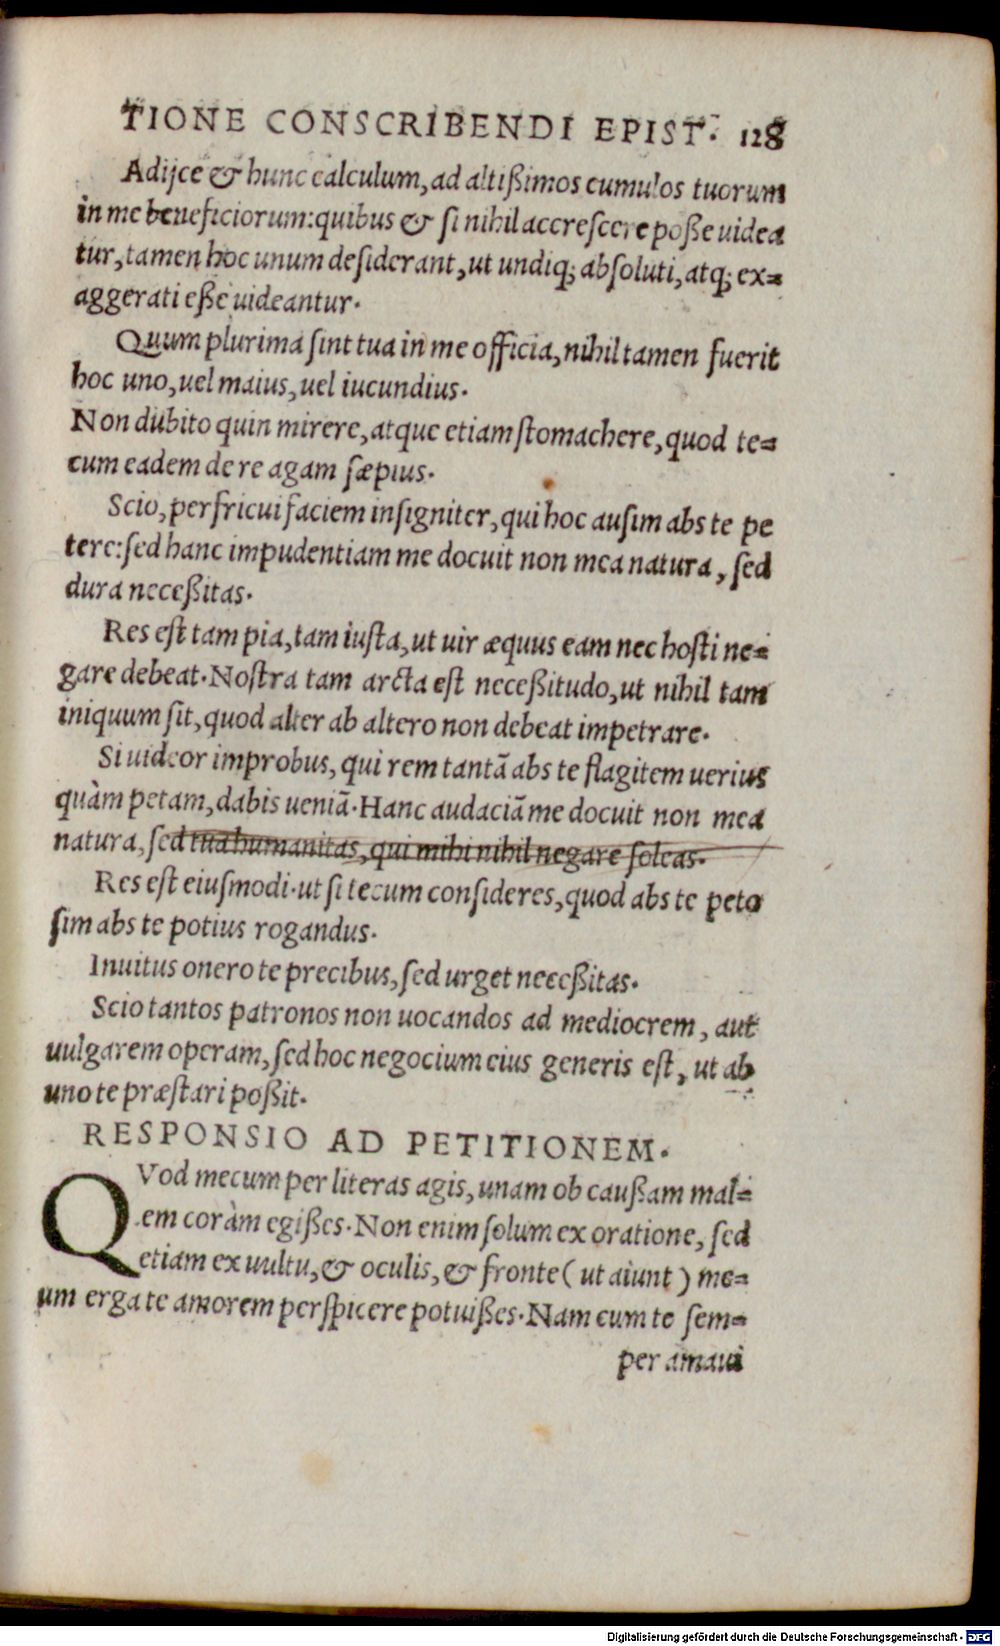 TIONE CONSCRIBENDI EPIST. 128
Adijce & hunc calculum, ad altißimos cumulos tuorum
in me beneficiorum: quibus & ſi nihil accreſcere poße uidea
tur, tamen hoc unum deſiderant, ut undiq; abſoluti, atq; ex=
aggerati eße uideantur.
Quum plurima ſint tua in me officia, nihil tamen fuerit
hoc uno, uel maius, uel iucundius.
Non dubito quin mirere, atque etiam ſtomachere, quod te=
cum eadem de re agam ſæpius.
Scio, perfricui faciem inſigniter, qui hoc auſim abs te pe
tere: ſed hanc impudentiam me docuit non mea natura, ſed
dura neceßitas.
Res eſt tam pia, tam iuſta, ut uir æquus eam nec hoſti ne=
gare debeat. Noſtra tam arcta eſt neceßitudo, ut nihil tam
iniquum ſit, quod alter ab altero non debeat impetrare.
Si uideor improbus, qui rem tantā abs te flagitem uerius
quàm petam, dabis ueniā. Hanc audaciā me docuit non mea
natura, ſed tua humanitas, qui mihi nihil negare ſoleas.
Res eſt eiuſmodi. ut ſi tecum conſideres, quod abs te peto
ſim abs te potius rogandus.
Inuitus onero te precibus, ſed urget neceßitas.
Scio tantos patronos non uocandos ad mediocrem, aut
uulgarem operam, ſed hoc negocium eius generis eſt, ut ab
uno te præſtari poßit.
RESPONSIO AD PETITIONEM.
QVod mecum per literas agis, unam ob caußam mal=
em coràm egißes. Non enim ſolum ex oratione, ſed
etiam ex uultu, & oculis, & fronte (ut aiunt) me=
um erga te amorem perſpicere potuißes. Nam cum te ſem=
per amaui
Digitalisierung gefördert durch die Deutsche Forschungsgemeinschaft - DFG